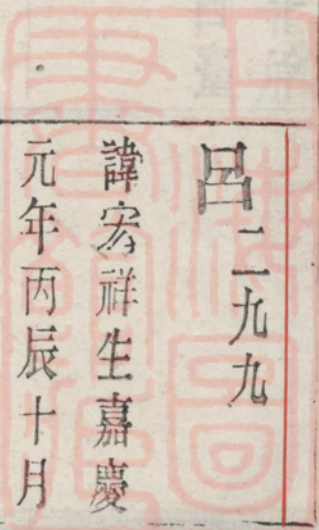 呂二九九
諱宏祥生嘉慶
元年丙辰十月